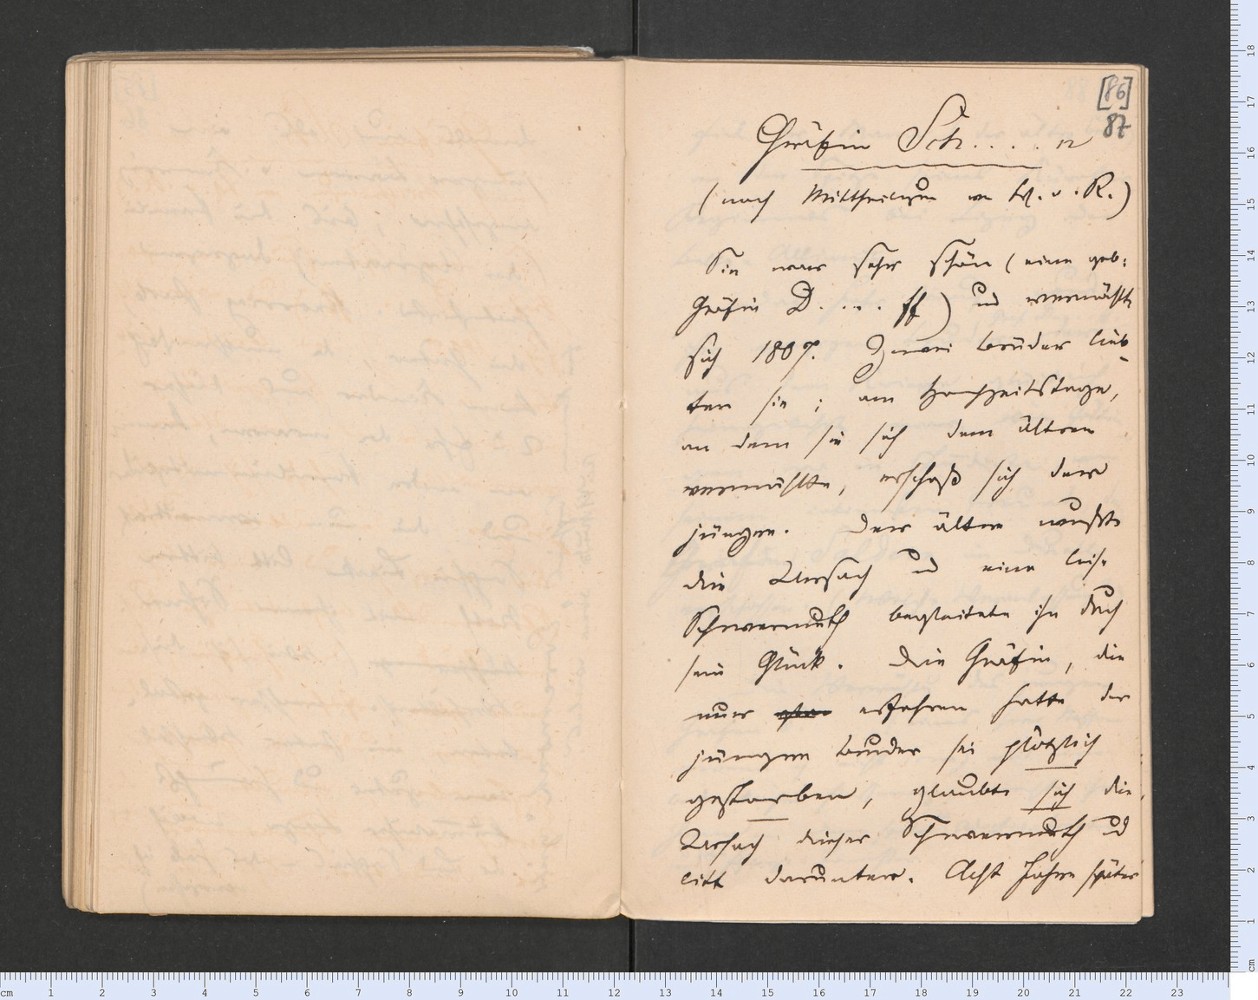 [86]
87
Gräfin Sch. . . . n
(nach Mittheilungen von W. v. R.)
Sie war sehr schön (eine geb:
Gräfin D. . . . ff) und vermählte
sich 180 Zwei Brüder lieb-
ten sie; am Hochzeitstage,
an dem sie sich dem älteren
vermählte, erschoß sich der
jüngre. Der ältre wußte
die Ursach und eine leise
Schwermuth begleitete ihn durch
sein Glück. Die Gräfin, die
nur erfahren hatte der
jüngre Bruder sei plötzlich
gestorben, glaubte sich die
Ursach dieser Schwermuth und
litt darunter. Acht Jahre später